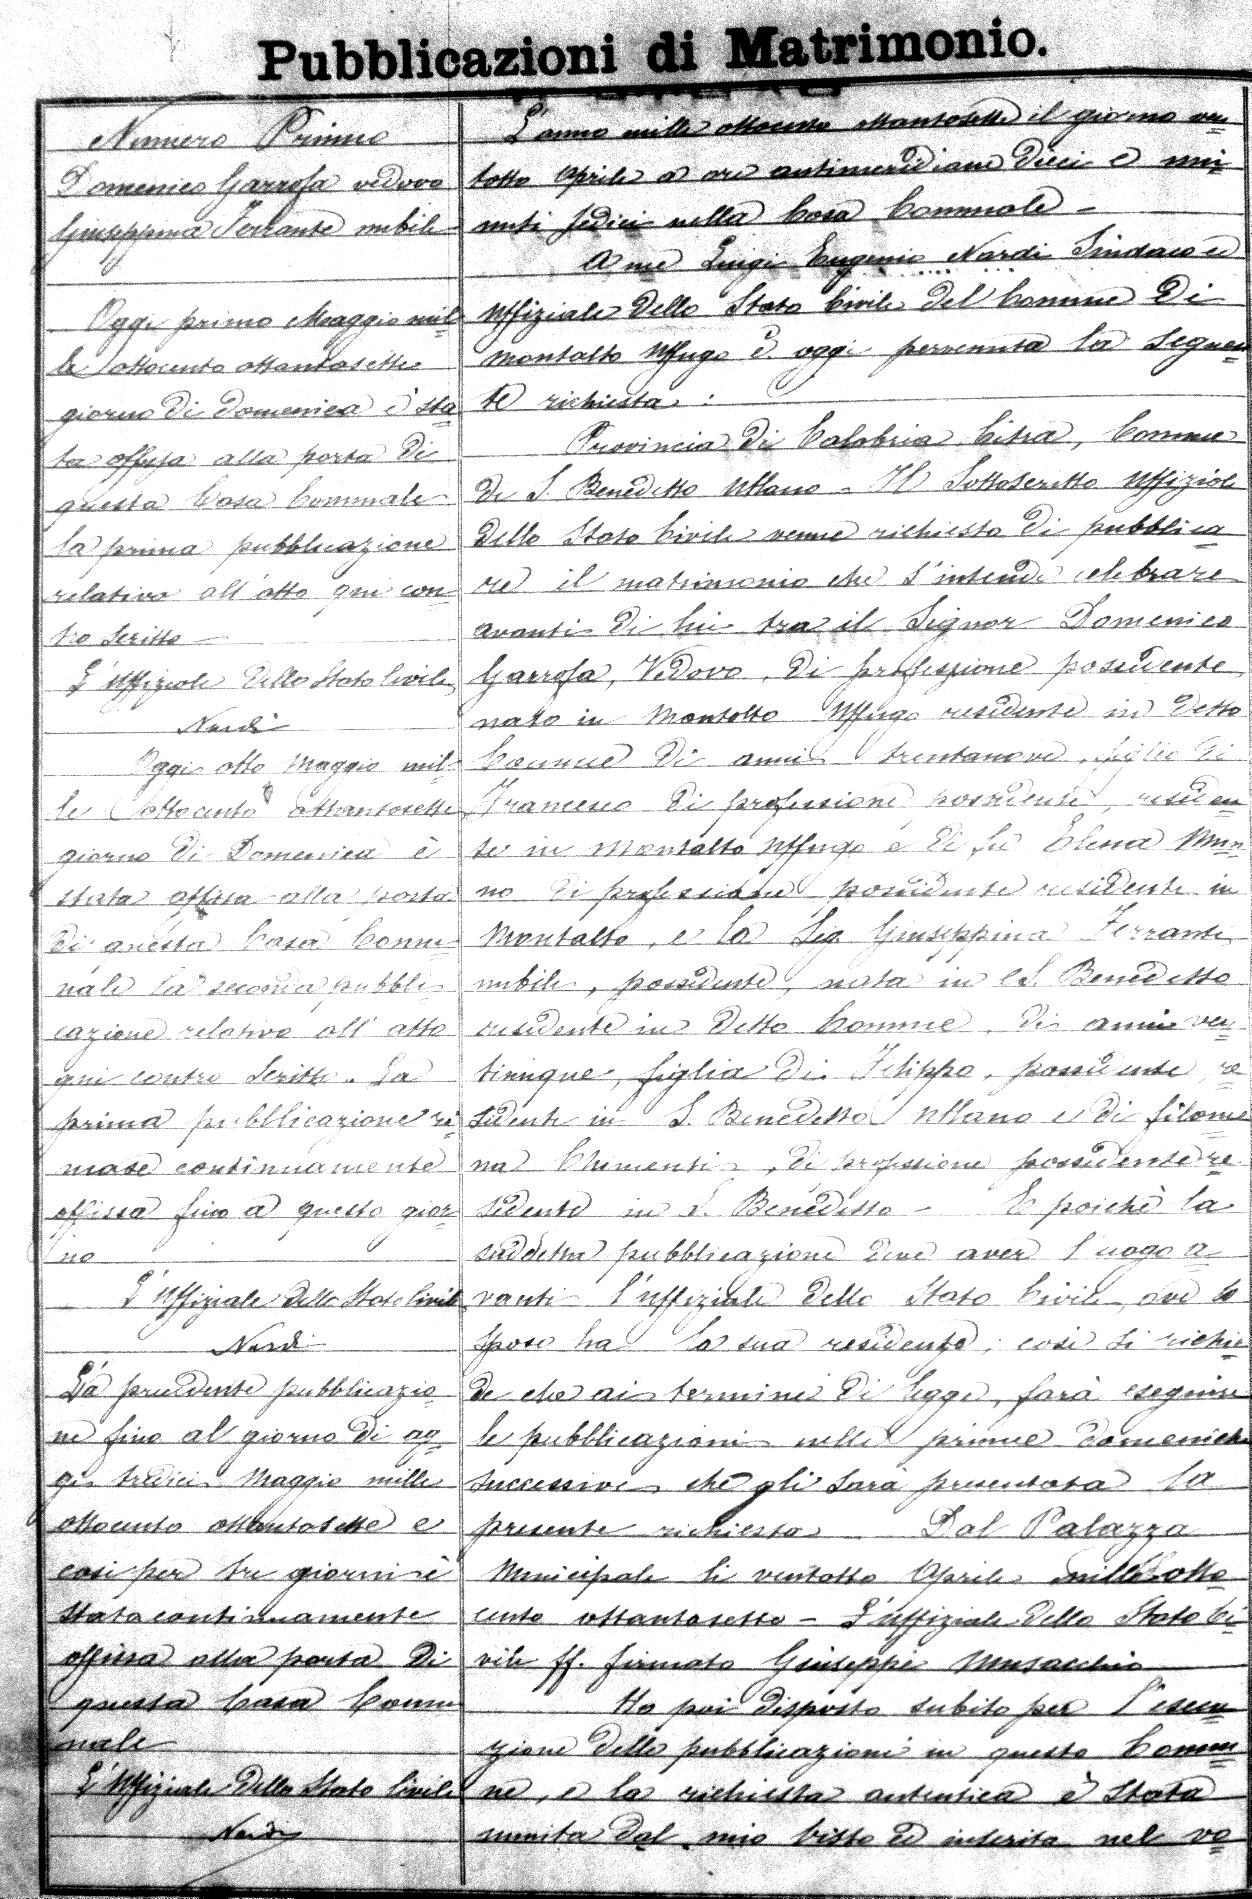 Pubblicazioni di Matrimonio.
Numero Primo
Domenico Garrofa vedovo
Giuseppina Ferrante nubile
Oggi primo Maggio mil=
le ottocento ottantasette
giorno di domenica è sta=
ta affissa alla porta di
questa Casa Comunale
la prima pubblicazione
relativa all'atto qui con=
tro scritto
L'Uffiziale dello Stato Civile
Nardi
Oggi otto Maggio mil=
le ottocento ottantasette
giorno di Domenica è
stata affissa alla porta
di questa Casa Comu=
nale la seconda pubbli=
cazione relativa all'atto
qui contro scritto. La
prima pubblicazione ri=
mase continuamente
affissa fino a questo gior=
no
L'Uffiziale dello Stato Civile
Nardi
La precedente pubblicazio=
ne fino al giorno di og=
gi tredici Maggio mille
ottocento ottantasette e
così per tre giorni è
stata continuamente
affissa alla porta di
questa Casa Comu=
nale
L'Uffiziale dello Stato Civile
Nardi
L'anno mille ottocento ottantasette il giorno ven=
totto Aprile a ore antimeridiane dieci e mi=
nuti sedici nella Casa Comunale -
A me Luigi Eugenio Nardi Sindaco ed
Uffiziale dello Stato Civile del Comune di
Montalto Uffugo è oggi pervenuta la seguen=
te richiesta:
Provincia di Calabria Citra, Comune
di S. Benedetto Ullano - Il Sottoscritto Uffiziale
dello Stato Civile venne richiesto di pubblica=
re il matrimonio che s'intende celebrare
avanti di lui tra il Signor Domenico
Garrofa, Vedovo, di professione possidente,
nato in Montalto Uffugo residente in detto
Comune di anni trentanove, figlio di
Francesco di professione possidente, residen=
te in Montalto Uffugo e di fu Elena Mun=
no di professione possidente residente in
Montalto, e la Sig. Giuseppina Ferrante
nubile, possidente, nata in S. Benedetto
residente in detto Comune, di anni ven=
tinque, figlia di Filippo, possidente, re=
sidente in S. Benedetto Ullano e di Filome=
na Chimenti, di professione possidente re=
sidente in S. Benedetto - E poichè la
suddetta pubblicazione deve aver luogo a=
vanti l'uffiziale dello Stato Civile, ove lo
sposo ha la sua residenza; così si richie=
de che ai termini di legge, farà eseguire
le pubblicazioni nelle prime domeniche
successive che gli sarà presentata la
presente richiesta Dal Palazzo
Municipale li ventotto Aprile mille otto=
cento ottantasette - L'uffiziale dello Stato Ci=
vile ff. firmato Giuseppe Musacchio
Ho poi disposto subito per l'esecu=
zione delle pubblicazioni in questo Comu=
ne, e la richiesta autentica è stata
munita dal mio visto ed inserita nel vo=